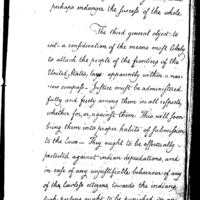 perhaps endanger the success of the whole.
The third general object: to
wit: a consideration of the means most likely
to attach the people of the frontiers of the
United States, lays apparently within a nar-
row compass. Justice must be administered
fully and freely among them in all respects,
whether for, or, against them. This will soon
bring them into proper habits of submission
to the laws — They ought to be effectually
protected against indian depredations, and
in case of any unjustifiable behaviour of any
of the lawless citizens towards the indians
such persons ought to be punished in an